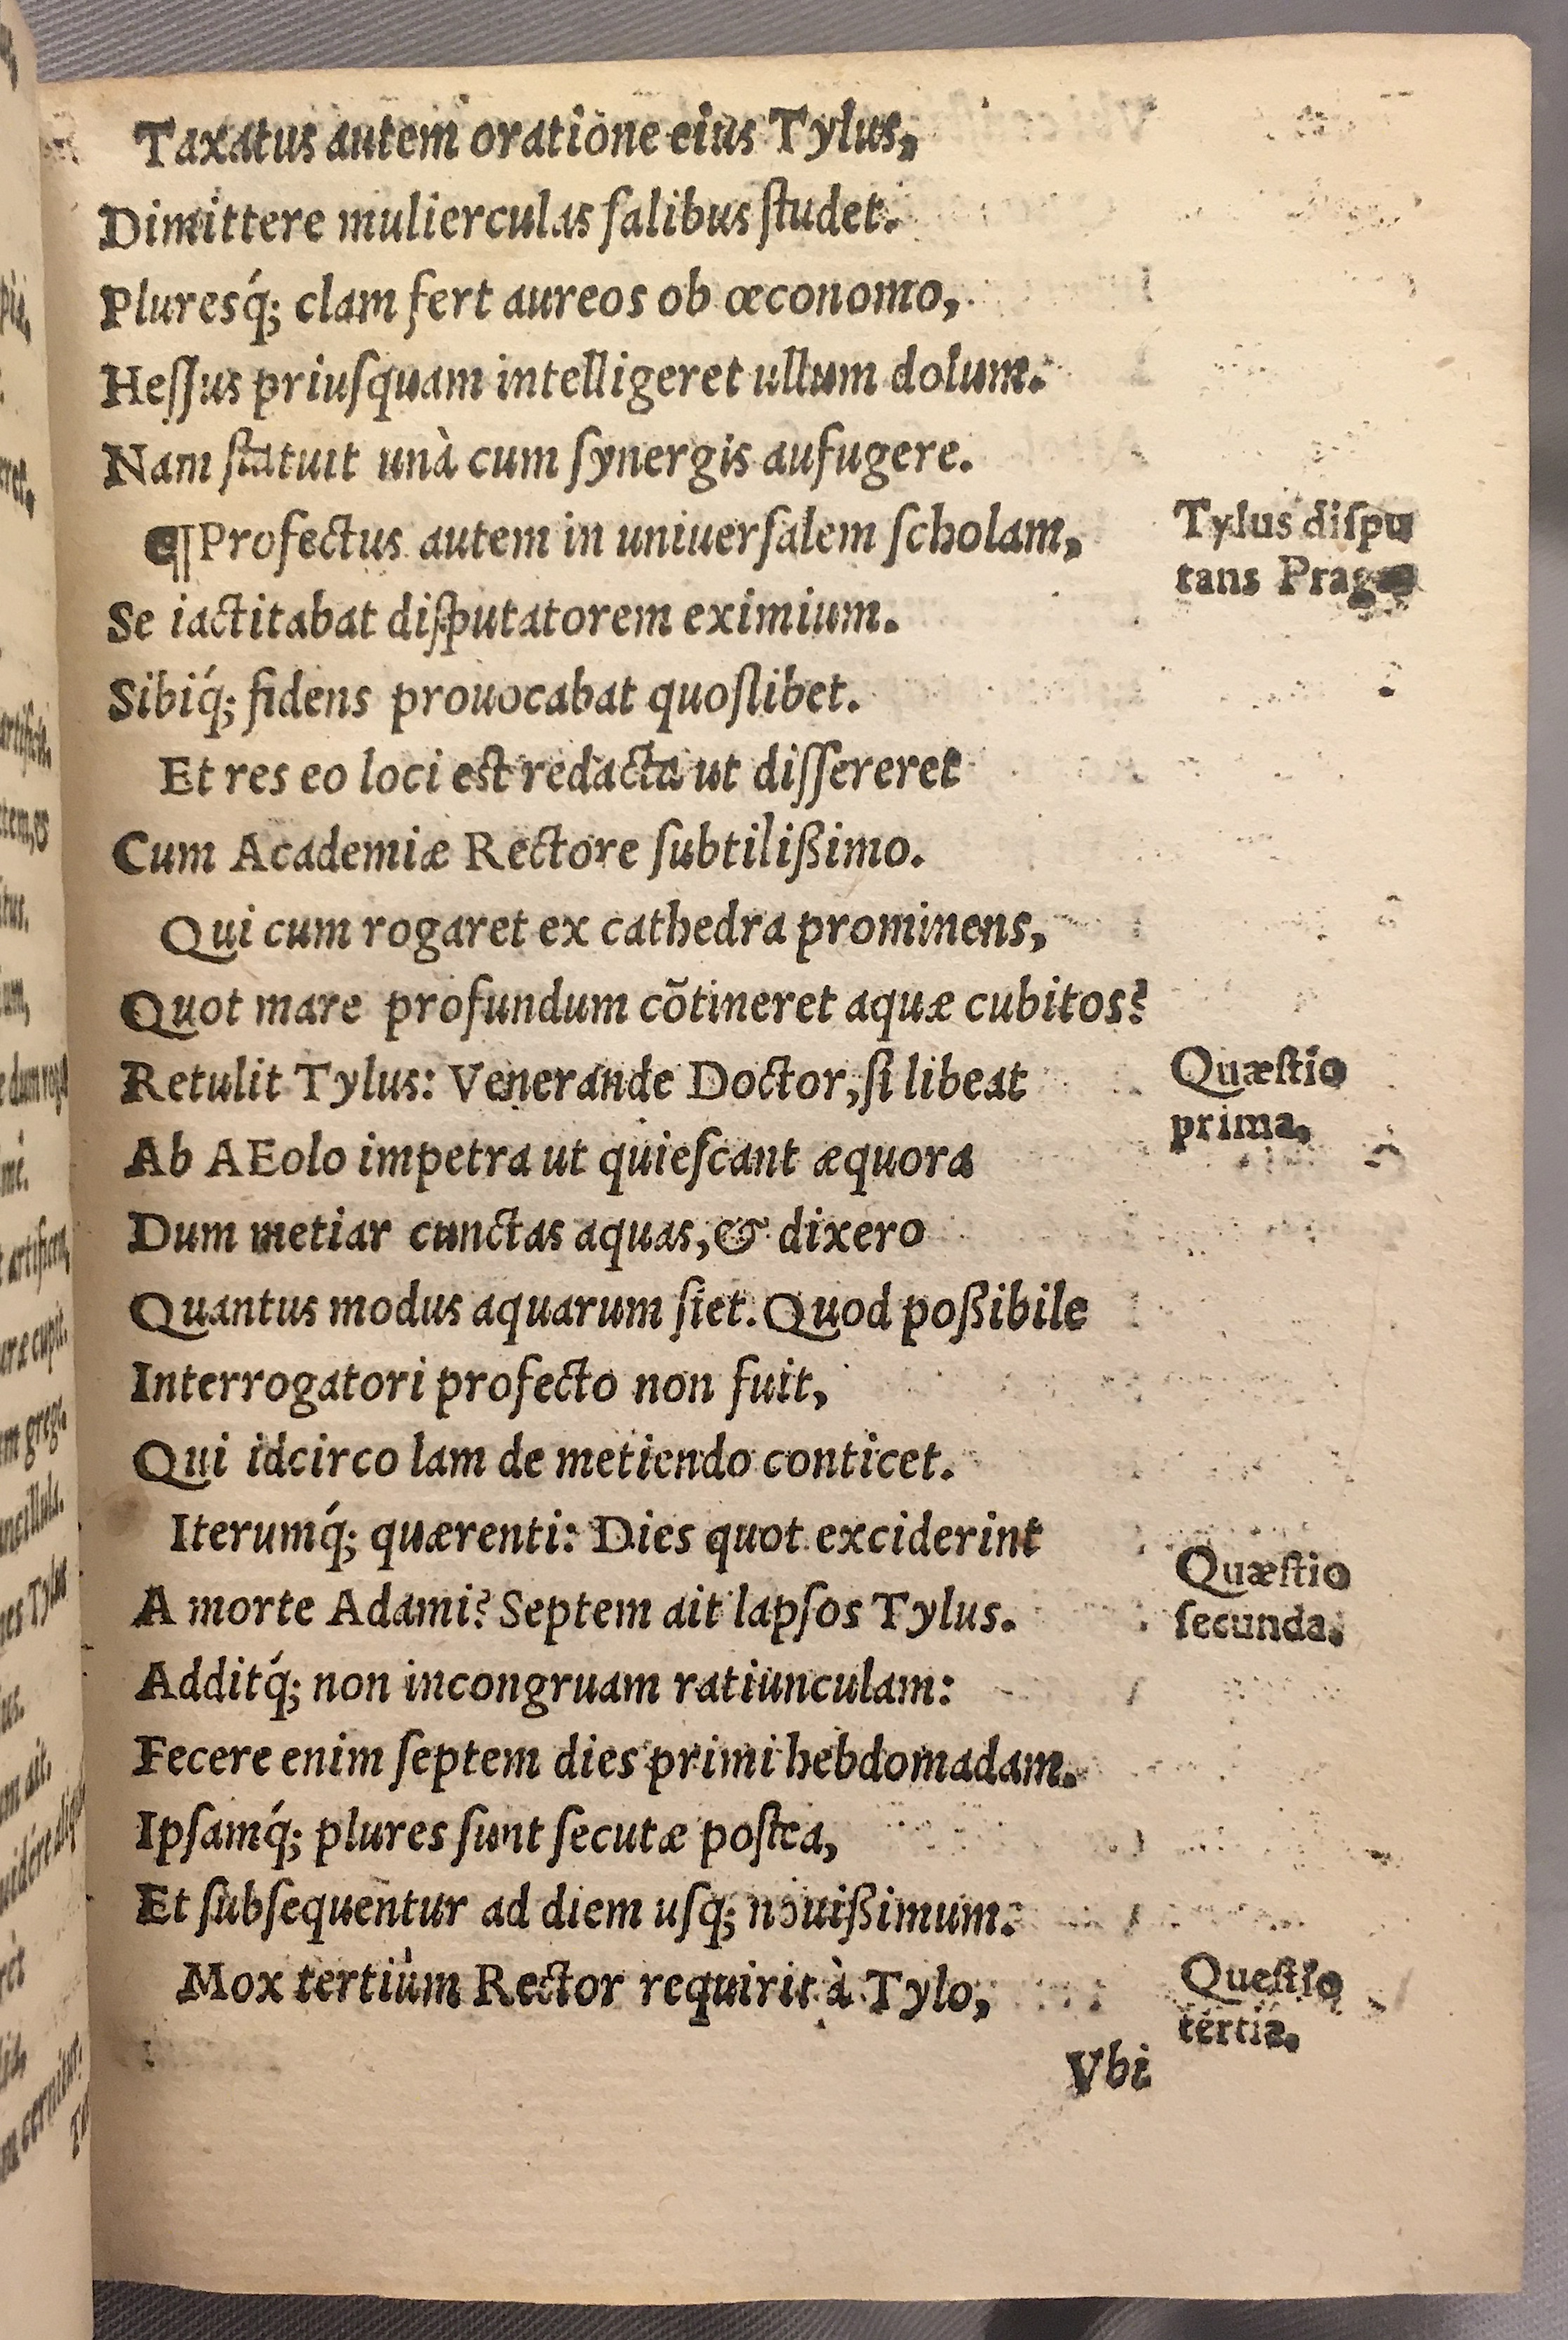 Taxatus autem oratione eius Tylus,
Dimittere mulierculas ſalibus ſtudet.
Pluresq́; clam fert aureos ob œconomo,
Heſſus priuſquam intelligeret ullum dolum.
Nam ſtatuit unà cum ſynergis aufugere.
¶Profectus autem in uniuerſalem ſcholam,
Tylus diſpu
tans Prag
Se iactitabat diſputatorem eximium.
Sibiq́; fidens prouocabat quoſlibet.
Et res eo loci est redacta ut diſſereret
Cum Academiæ Rectore ſubtilißimo.
Qui cum rogaret ex cathedra prominens,
Quot mare profundum cõtineret aquæ cubitos?
Retulit Tylus: Venerande Doctor, ſi libeat
Quæſtio
prima.
Ab AEolo impetra ut quieſcant æquora
Dum metiar cunctas aquas, & dixero
Quantus modus aquarum ſiet. Quod poßibile
Interrogatori profecto non fuit,
Qui idcirco lam de metiendo conticet.
Iterumq́; quærenti: Dies quot exciderint
Quæſtio
ſecunda.
A morte Adami? Septem ait lapſos Tylus.
Additq́; non incongruam ratiunculam:
Fecere enim ſeptem dies primi hebdomadam.
Ipſamq́; plures ſunt ſecutæ poſtea,
Et ſubſequentur ad diem uſq; nouißimum.
Mox tertiùm Rector requirit à Tylo,
Queſtio
tertia.
Vbi